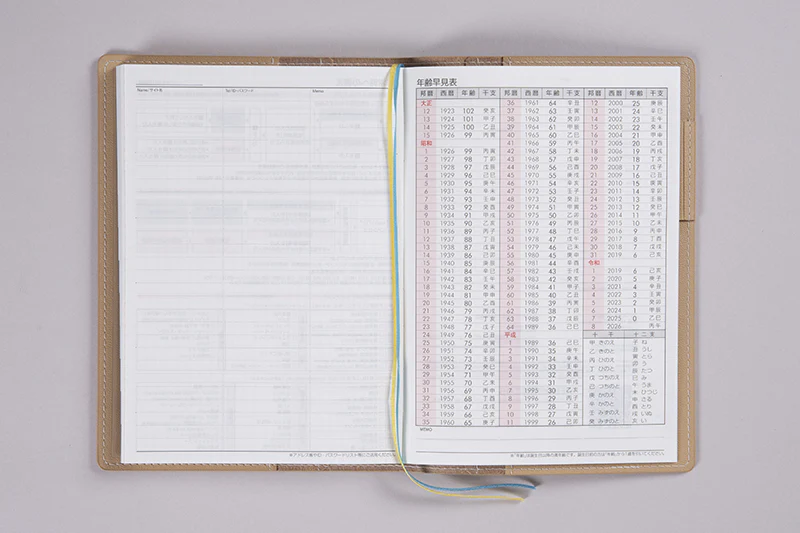 Memo
年齢早見表
邦暦 西暦 年齢 干支 邦暦 西暦 年齢 干支 邦暦 西暦 年齢 干支
大正 36 1961 64 辛丑 12 2000 25 庚辰
12 1923 102 癸亥 37 1962 63 壬寅 13 2001 24 辛巳
13 1924 101 甲子 38 1963 62 癸卯 14 2002 23 壬午
14 1925 100 乙丑 39 1964 61 甲辰 15 2003 22 癸未
15 1926 99 丙寅 40 1965 60 乙巳 16 2004 21 甲申
昭和 41 1966 59 丙午 17 2005 20 乙酉
1 1926 99 丙寅 42 1967 58 丁未 18 2006 19 丙戌
2 1927 98 丁卯 43 1968 57 戊申 19 2007 18 丁亥
3 1928 97 戊辰 44 1969 56 己酉 20 2008 17 戊子
4 1929 96 己巳 45 1970 55 庚戌 21 2009 16 己丑
5 1930 95 庚午 46 1971 54 辛亥 22 2010 15 庚寅
6 1931 94 辛未 47 1972 53 壬子 23 2011 14 辛卯
7 1932 93 壬申 48 1973 52 癸丑 24 2012 13 壬辰
8 1933 92 癸酉 49 1974 51 甲寅 25 2013 12 癸巳
9 1934 91 甲戌 50 1975 50 乙卯 26 2014 11 甲午
10 1935 90 乙亥 51 1976 49 丙辰 27 2015 10 乙未
11 1936 89 丙子 52 1977 48 丁巳 28 2016 9 丙申
12 1937 88 丁丑 53 1978 47 戊午 29 2017 8 丁酉
13 1938 87 戊寅 54 1979 46 己未 30 2018 7 戊戌
14 1939 86 己卯 55 1980 45 庚申 31 2019 6 己亥
15 1940 85 庚辰 56 1981 44 辛酉 令和
16 1941 84 辛巳 57 1982 43 壬戌 1 2019 6 己亥
17 1942 83 壬午 58 1983 42 癸亥 2 2020 5 庚子
18 1943 82 癸未 59 1984 41 甲子 3 2021 4 辛丑
19 1944 81 甲申 60 1985 40 乙丑 4 2022 3 壬寅
20 1945 80 乙酉 61 1986 39 丙寅 5 2023 2 癸卯
21 1946 79 丙戌 62 1987 38 丁卯 6 2024 1 甲辰
22 1947 78 丁亥 63 1988 37 戊辰 7 2025 0 乙巳
23 1948 77 戊子 64 1989 36 己巳 8 2026 丙午
24 1949 76 己丑 平成 十干 十二支
25 1950 75 庚寅 1 1989 36 己巳 甲 きのえ 子 ね
26 1951 74 辛卯 2 1990 35 庚午 乙 きのと 丑 うし
27 1952 73 壬辰 3 1991 34 辛未 丙 ひのえ 寅 とら
28 1953 72 癸巳 4 1992 33 壬申 丁 ひのと 卯 う
29 1954 71 甲午 5 1993 32 癸酉 戊 つちのえ 辰 たつ
30 1955 70 乙未 6 1994 31 甲戌 己 つちのと 巳 み
31 1956 69 丙申 7 1995 30 乙亥 庚 かのえ 午 うま
32 1957 68 丁酉 8 1996 29 丙子 辛 かのと 未 ひつじ
33 1958 67 戊戌 9 1997 28 丁丑 壬 みずのえ 申 さる
34 1959 66 己亥 10 1998 27 戊寅 癸 みずのと 酉 とり
35 1960 65 庚子 11 1999 26 己卯 戌 いぬ
亥 い
MEMO